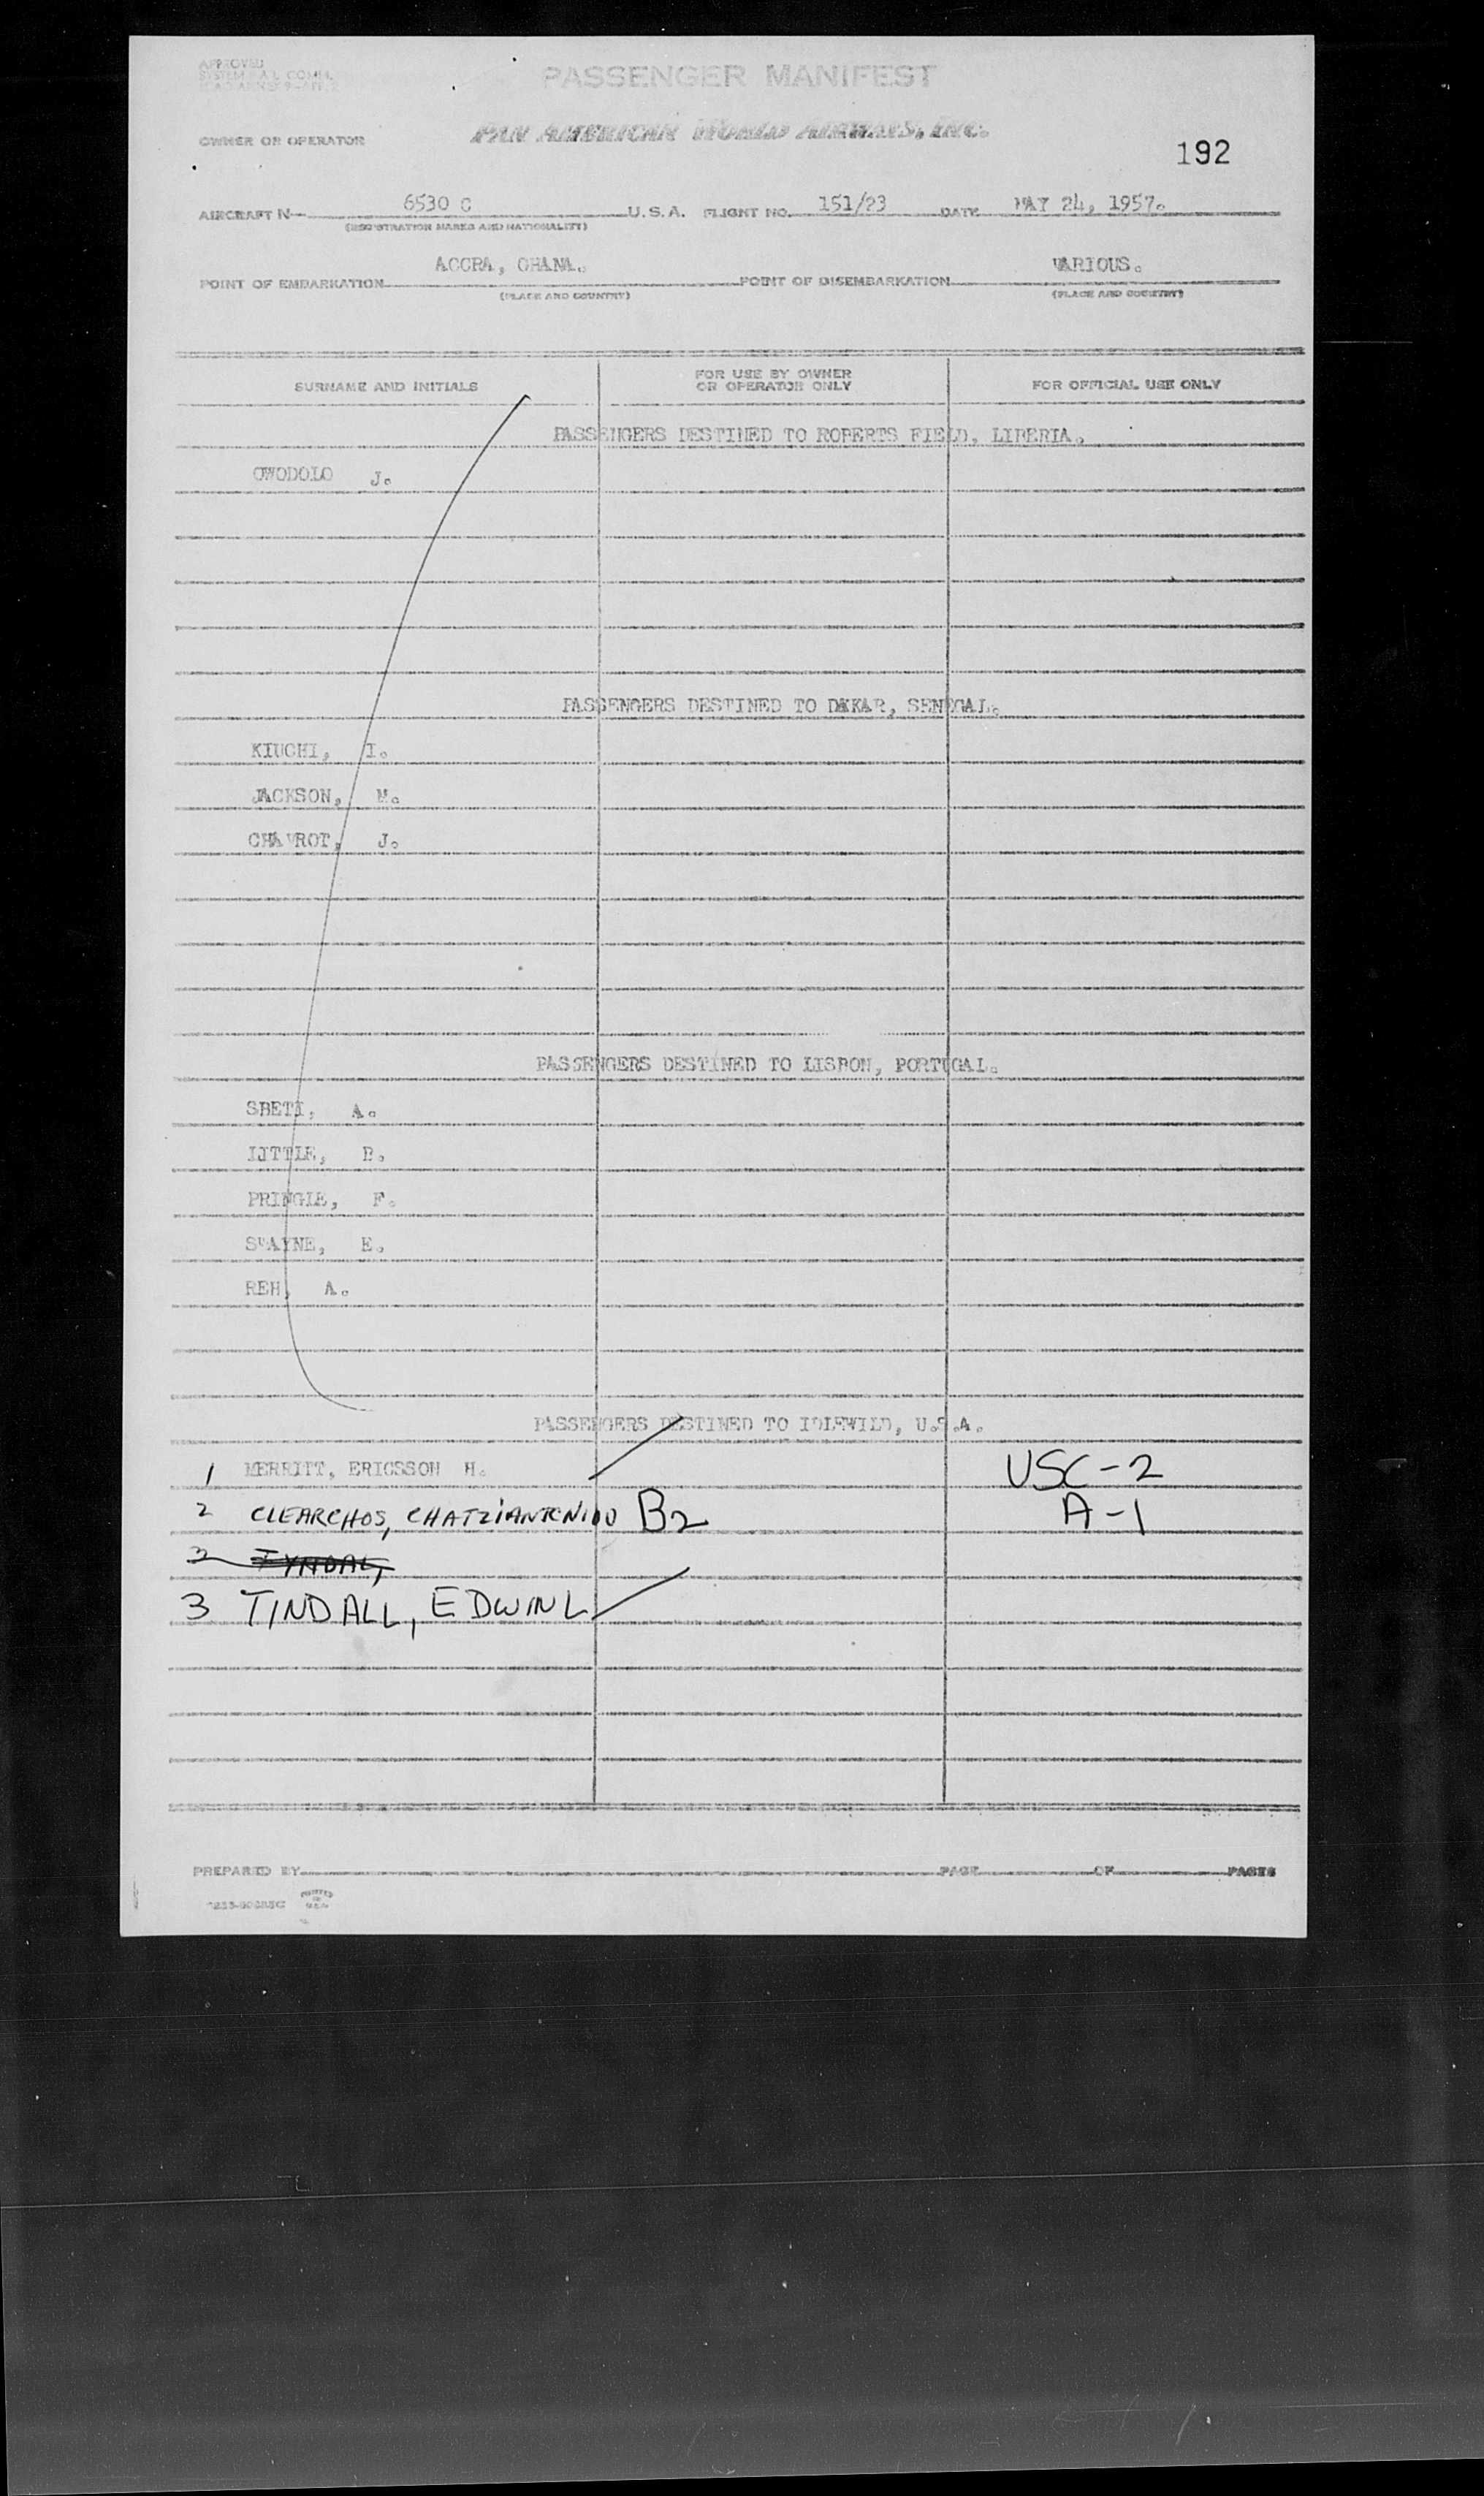 APPROVED
PASSENGER MANIFEST
PAN AMERICAN WORLD AIRWAYS, INC.
OWNER OR OPERATOR
192
AIRCRAFT N 6530 C U.S.A. FLIGHT NO. 151/23 DATE MAY 24, 1957.
(REGISTRATION MARKS AND NATIONALITY)
POINT OF EMBARKATION ACCRA, GHANA. POINT OF DISEMBARKATION VARIOUS.
(PLACE AND COUNTRY) (PLACE AND COUNTRY)
SURNAME AND INITIALS
FOR USE BY OWNER
OR OPERATOR ONLY
FOR OFFICIAL USE ONLY
PASSENGERS DESTINED TO ROBERTS FIELD, LIBERIA.
OWODOLO J.
PASSENGERS DESTINED TO DAKAR, SENEGAL.
KIUCHI, I.
JACKSON, M.
CHAVROT, J.
PASSENGERS DESTINED TO LISBON, PORTUGAL.
SBETI, A.
LITTLE, B.
PRINGLE, F.
SWAYNE, E.
REH, A.
PASSENGERS DESTINED TO IDLEWILD, U.S.A.
1 MERRITT, ERICSSON H. USC-2
2 CLEARCHOS, CHATZIANTONIOU B2 A-1
3 TYNDAL,
3 TINDALL, EDWIN L
PREPARED BY PAGE OF PAGES
PRINTED
IN
U.S.A.